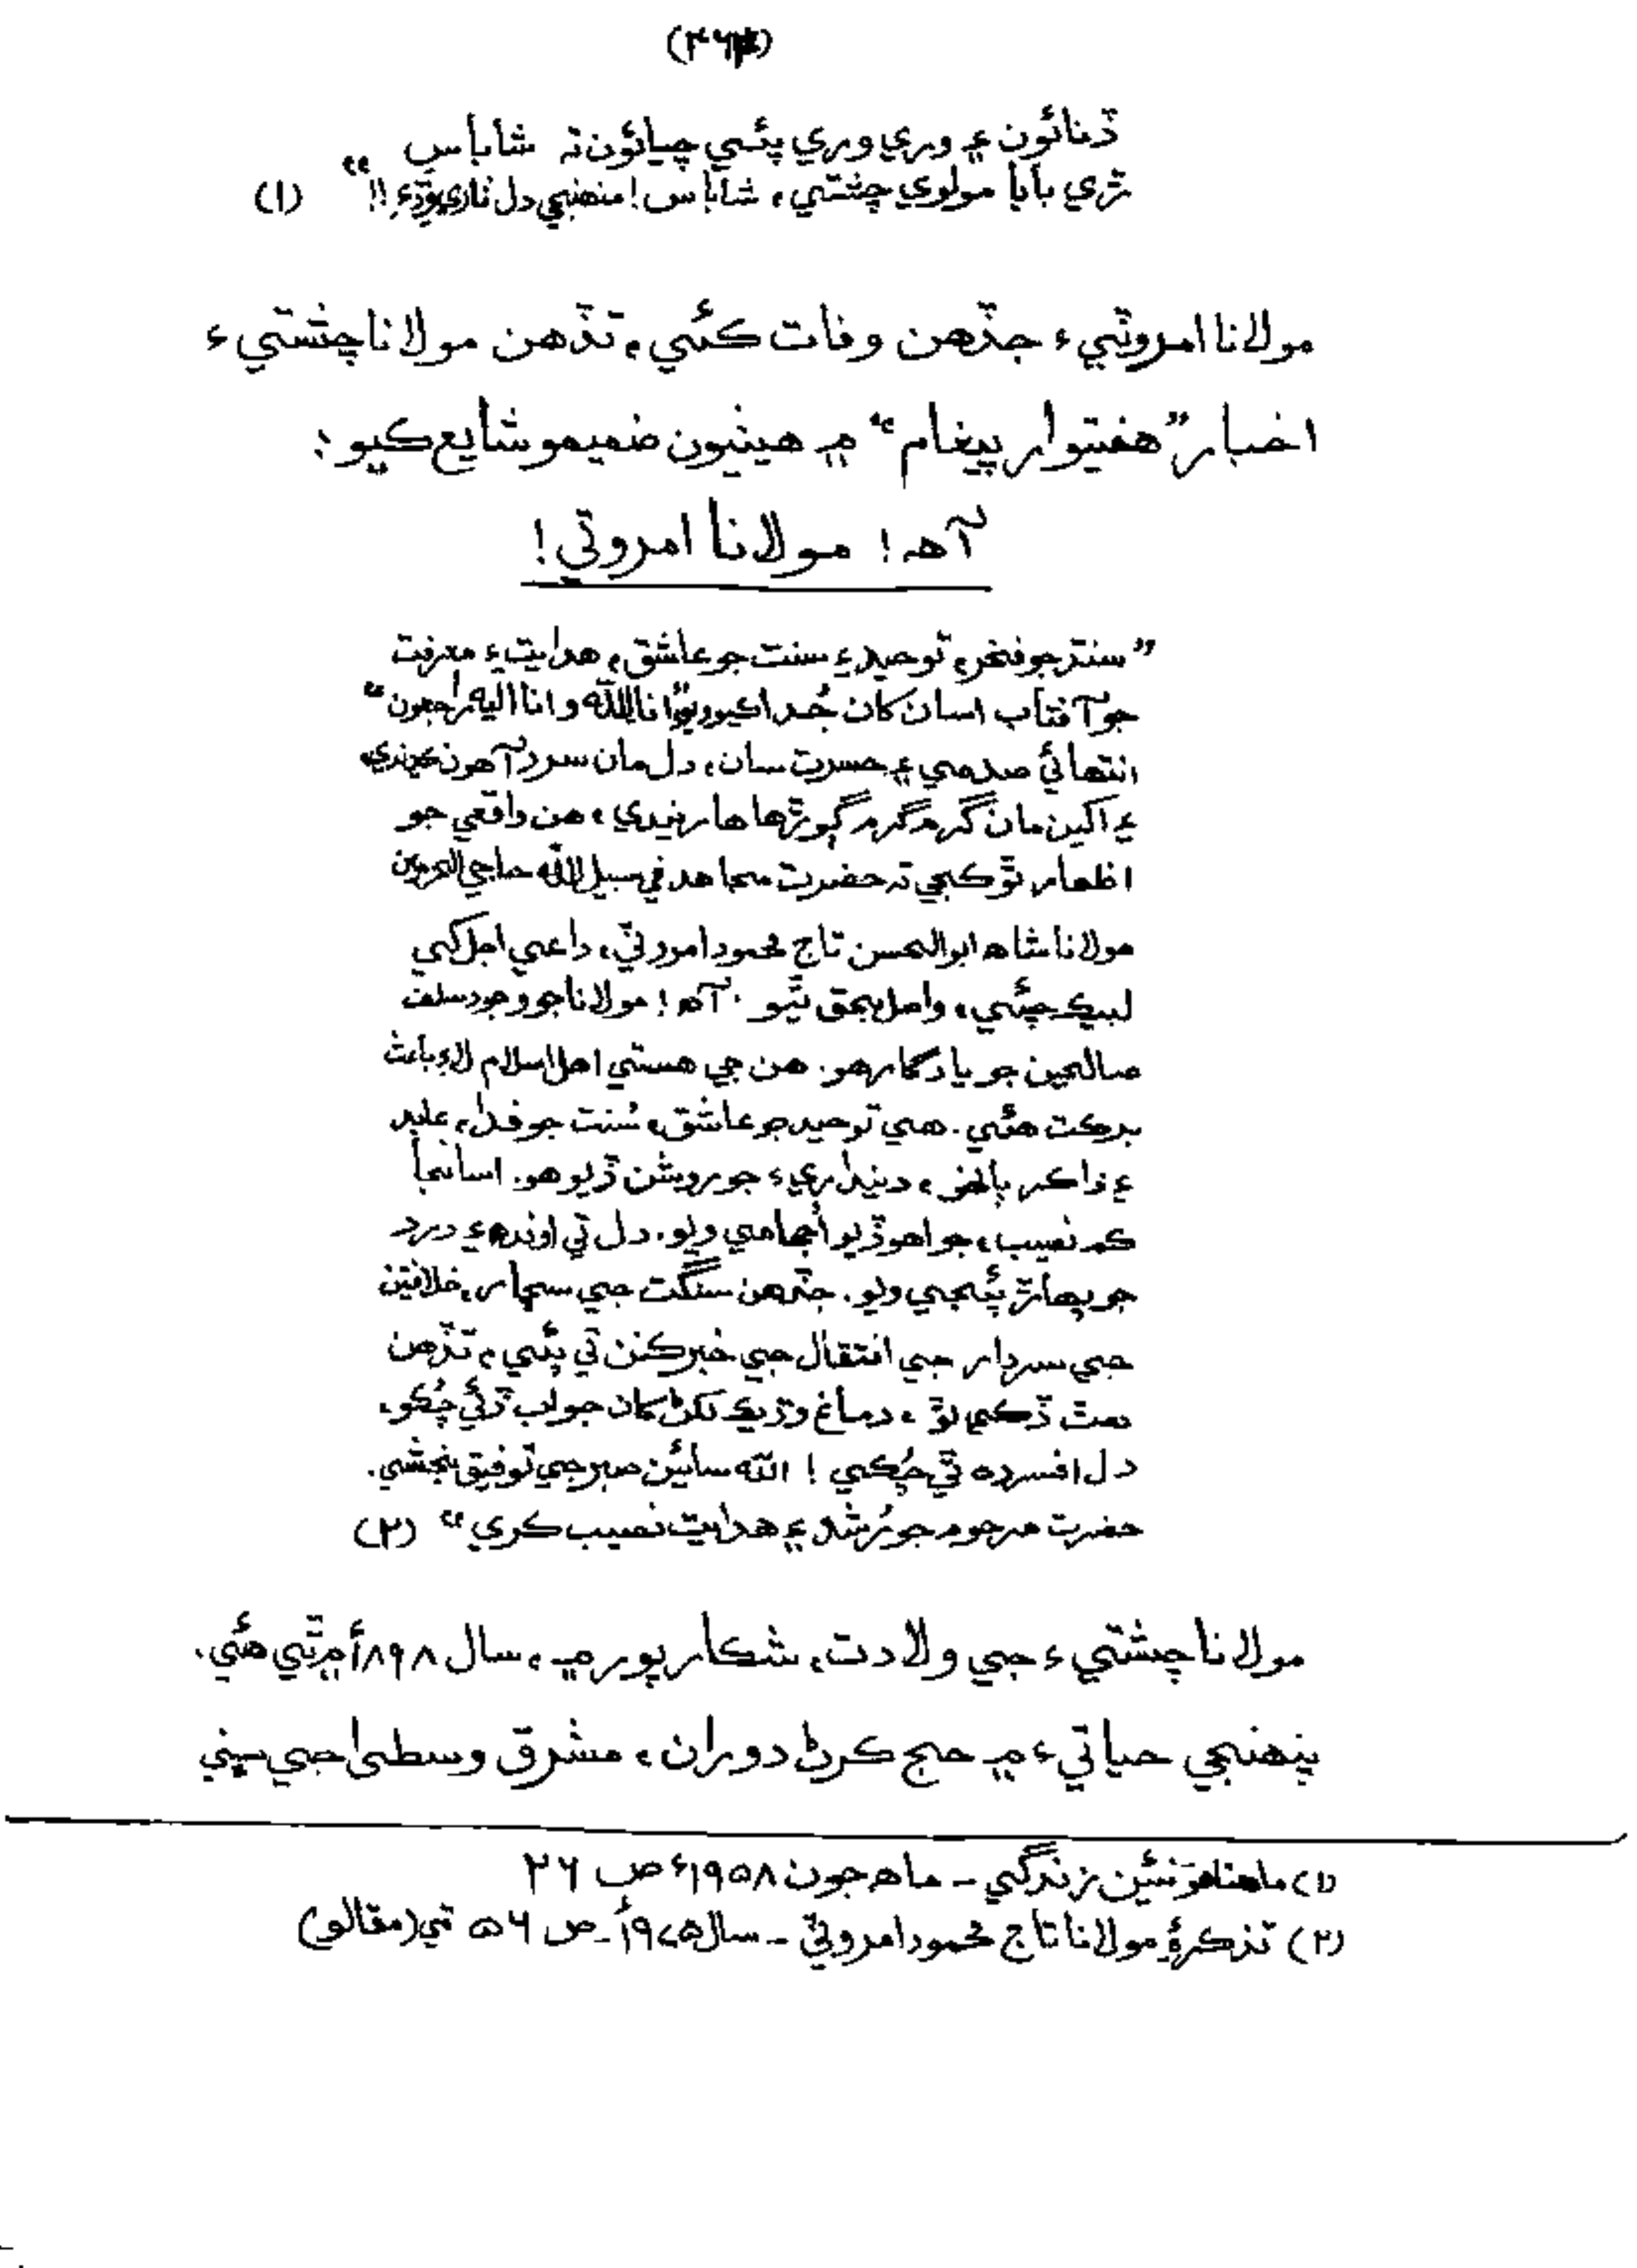 ڏنائون ۽ وري وري پئي چيائون تہ شاباس
ڙي بابا مولوي چشتي، شاباس! منهنجي دل ٺاري ڇڏيءِ !!“ (۱)
مولانا امروٽيء جڏهن وفات ڪئي، تڏهن مولانا چشتيء
اخبار ”هفتيوار پيغام“ ۾ هيٺيون ضميمو شايع ڪيو :
آھ! مولانا امروٽي!
”سنڌ جو فخر، توحيد ۽ سنت جو عاشق، هدايت ۽ معرفت
جو آفتاب اسان کان جُدا ٿيو ”انا لله وانا اليه راجعون“
انتهائي صدمي ۽ حسرت سان، دل مان سرد آهون ڪڍندي
۽ اکين مان گرم گرم ڳوڙها هاريندي، هن واقعي جو
اظهار ٿو ڪجي تہ حضرت مجاهد في سبيل الله حاجي الحرمين
مولانا شاھ ابوالحسن تاج محمود امروٽي، داعي اجل کي
لبيڪ چئي، واصل بحق ٿيو. آھ! مولانا جو وجود سلف
صالحين جو يادگار هو. هن جي هستي اهل اسلام لاءِ باعث
برڪت هئي. هي توحيد جو عاشق، سُنت جو فدا، عابد
۽ ذاڪر بالله، دينداريء جو روشن ڏيو هو. اسانجا
ڪم نصيب، جو اهو ڏيو اُجهامي ويو. دل تي اونده ۽ درد
جو پهاڙ پئجي ويو. جڏهن سنگت جي سچار، خلافتين
جي سردار جي انتقال جي خبر ڪنن تي پئي، تڏهن
هٿ ڏڪي ٿو، دماغ وڌيڪ لکڻ کان جواب ڏئي چُڪو،
دل افسرده ٿي چُڪي! الله سائين صبر جي توفيق بخشي.
حضرت مرحوم جو رُشد ۽ هدايت نصيب ڪري“ (۲)
مولانا چشتيء جي ولادت، شڪارپور ۾، سال ۱۸۹۸ء ۾ ٿي هئي.
پنهنجي حياتيء ۾ حج ڪرڻ دوران، مشرق وسطيٰ جي سڀني
(۱) ماهنامو نئين زندگي ــ ماھ جون ۱۹۵۸ء ص ۲۶
(۲) تذڪرۂ مولانا تاج محمود امروٽي ــ سال ۱۹۷۵ء ــ ص ۵۶ تي (مقالو)